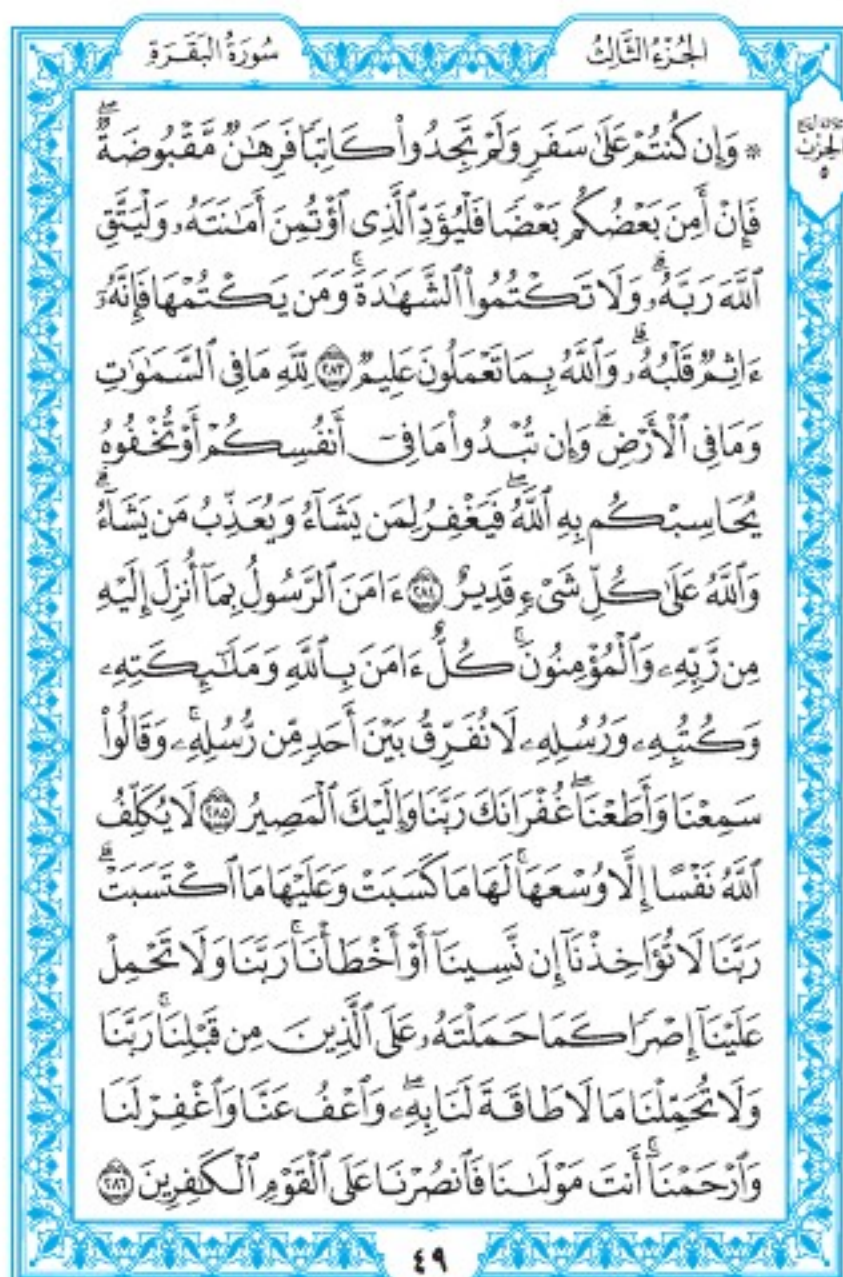 الجُزْءُ الثَّالِثُ
سُورَةُ البَقَرَةِ
الحِزْبُ
٥
۞ وَإِن كُنتُمْ عَلَىٰ سَفَرٍ وَلَمْ تَجِدُوا۟ كَاتِبًا فَرِهَـٰنٌ مَّقْبُوضَةٌ ۖ
فَإِنْ أَمِنَ بَعْضُكُم بَعْضًا فَلْيُؤَدِّ ٱلَّذِى ٱؤْتُمِنَ أَمَـٰنَتَهُۥ وَلْيَتَّقِ
ٱللَّهَ رَبَّهُۥ ۗ وَلَا تَكْتُمُوا۟ ٱلشَّهَـٰدَةَ ۚ وَمَن يَكْتُمْهَا فَإِنَّهُۥٓ
ءَاثِمٌ قَلْبُهُۥ ۗ وَٱللَّهُ بِمَا تَعْمَلُونَ عَلِيمٌ ٢٨٣ لِّلَّهِ مَا فِى ٱلسَّمَـٰوَٰتِ
وَمَا فِى ٱلْأَرْضِ ۗ وَإِن تُبْدُوا۟ مَا فِىٓ أَنفُسِكُمْ أَوْ تُخْفُوهُ
يُحَاسِبْكُم بِهِ ٱللَّهُ ۖ فَيَغْفِرُ لِمَن يَشَآءُ وَيُعَذِّبُ مَن يَشَآءُ ۗ
وَٱللَّهُ عَلَىٰ كُلِّ شَىْءٍ قَدِيرٌ ٢٨٤ ءَامَنَ ٱلرَّسُولُ بِمَآ أُنزِلَ إِلَيْهِ
مِن رَّبِّهِۦ وَٱلْمُؤْمِنُونَ ۚ كُلٌّ ءَامَنَ بِٱللَّهِ وَمَلَـٰٓئِكَتِهِۦ
وَكُتُبِهِۦ وَرُسُلِهِۦ لَا نُفَرِّقُ بَيْنَ أَحَدٍ مِّن رُّسُلِهِۦ ۚ وَقَالُوا۟
سَمِعْنَا وَأَطَعْنَا ۖ غُفْرَانَكَ رَبَّنَا وَإِلَيْكَ ٱلْمَصِيرُ ٢٨٥ لَا يُكَلِّفُ
ٱللَّهُ نَفْسًا إِلَّا وُسْعَهَا ۚ لَهَا مَا كَسَبَتْ وَعَلَيْهَا مَا ٱكْتَسَبَتْ ۗ
رَبَّنَا لَا تُؤَاخِذْنَآ إِن نَّسِينَآ أَوْ أَخْطَأْنَا ۚ رَبَّنَا وَلَا تَحْمِلْ
عَلَيْنَآ إِصْرًا كَمَا حَمَلْتَهُۥ عَلَى ٱلَّذِينَ مِن قَبْلِنَا ۚ رَبَّنَا
وَلَا تُحَمِّلْنَا مَا لَا طَاقَةَ لَنَا بِهِۦ ۖ وَٱعْفُ عَنَّا وَٱغْفِرْ لَنَا
وَٱرْحَمْنَآ ۚ أَنتَ مَوْلَىٰنَا فَٱنصُرْنَا عَلَى ٱلْقَوْمِ ٱلْكَـٰفِرِينَ ٢٨٦
٤٩